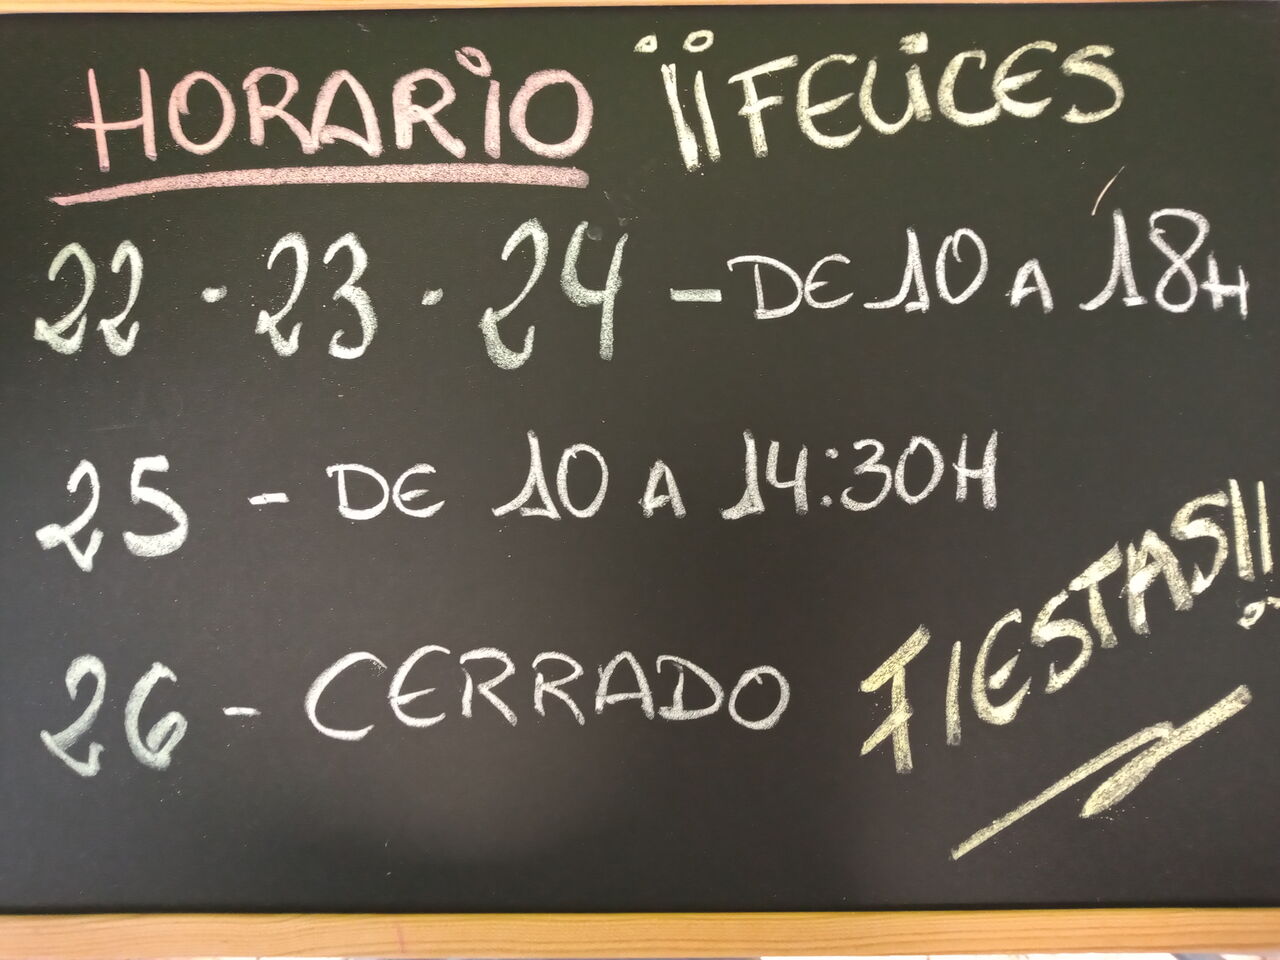 HORARIO ¡¡FELICES
22 · 23 · 24 - DE 10 A 18H
25 - DE 10 A 14:30H
26 - CERRADO
FIESTAS!!